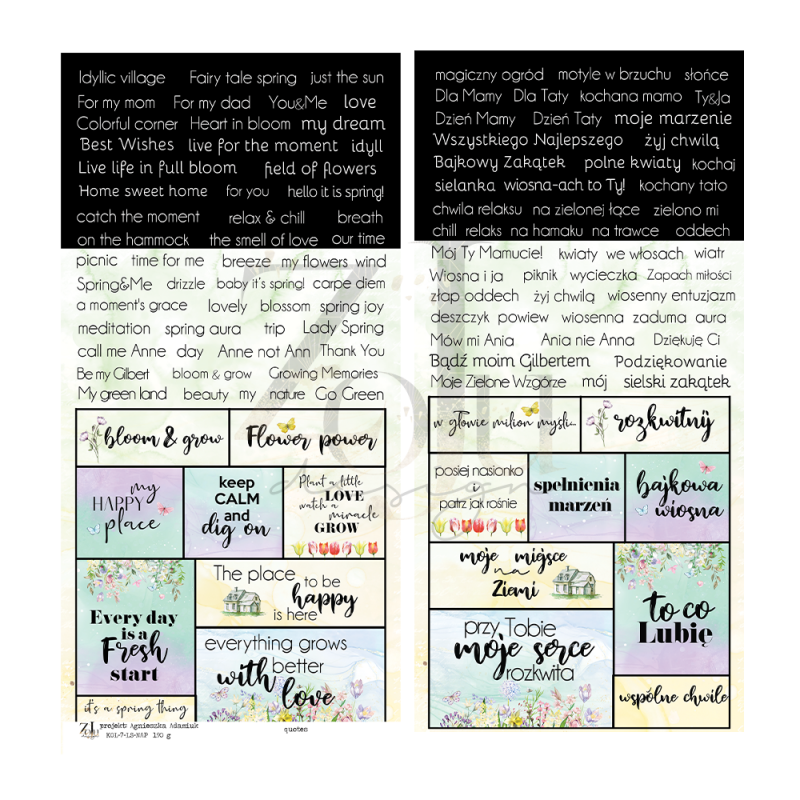 Idyllic village Fairy tale spring just the sun
For my mom For my dad You&Me love
Colorful corner Heart in bloom my dream
Best Wishes live for the moment idyll
Live life in full bloom field of flowers
Home sweet home for you hello it is spring!
catch the moment relax & chill breath
on the hammock the smell of love our time
picnic time for me breeze my flowers wind
Spring&Me drizzle baby it's spring! carpe diem
a moment's grace lovely blossom spring joy
meditation spring aura trip Lady Spring
call me Anne day Anne not Ann Thank You
Be my Gilbert bloom & grow Growing Memories
My green land beauty my nature Go Green
bloom & grow
Flower power
my
HAPPY
place
keep
CALM
and
dig on
Plant a little
LOVE
watch a miracle
GROW
Every day
is a
Fresh
start
The place to be
happy
is here
everything grows
with better
love
it's a spring thing
ZoLu
design
projekt Agnieszka Adamiuk
KOL-7-LS-NAP 190 g
quoten
magiczny ogród motyle w brzuchu słońce
Dla Mamy Dla Taty kochana mamo Ty&Ja
Dzień Mamy Dzień Taty moje marzenie
Wszystkiego Najlepszego żyj chwilą
Bajkowy Zakątek polne kwiaty kochaj
sielanka wiosna-ach to Ty! kochany tato
chwila relaksu na zielonej łące zielono mi
chill relaks na hamaku na trawce oddech
Mój Ty Mamucie! kwiaty we włosach wiatr
Wiosna i ja piknik wycieczka Zapach miłości
złap oddech żyj chwilą wiosenny entuzjazm
deszczyk powiew wiosenna zaduma aura
Mów mi Ania Ania nie Anna Dziękuję Ci
Bądź moim Gilbertem Podziękowanie
Moje Zielone Wzgórze mój sielski zakątek
w głowie milion myśli...
rozkwitnij
posiej nasionko
i
patrz jak rośnie
spełnienia
marzeń
bajkowa
wiosna
moje miejsce
na
Ziemi
to co
Lubię
przy Tobie
moje serce
rozkwita
wspólne chwile